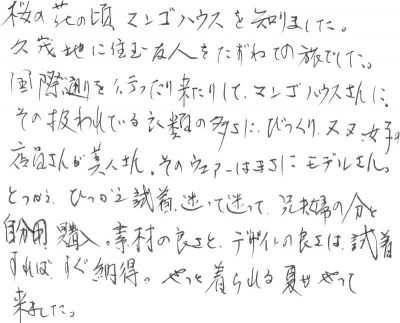 桜の花の頃 マンゴハウスを知りました。
久茂地に住む友人をたずねての旅でした。
国際通りを行ったり来たりして、マンゴハウスさんに。
その扱われている衣類の多さに、びっくり、又又、女子の
店員さんが美人さん。そのウェアーはまさにモデルさん。
とっかえ、ひっかえ試着、迷って迷って、兄夫婦の分と
自分用購入。素材の良さと、デザインの良さは、試着
すれば、すぐ納得。やっと着られる夏がやって
来ました。